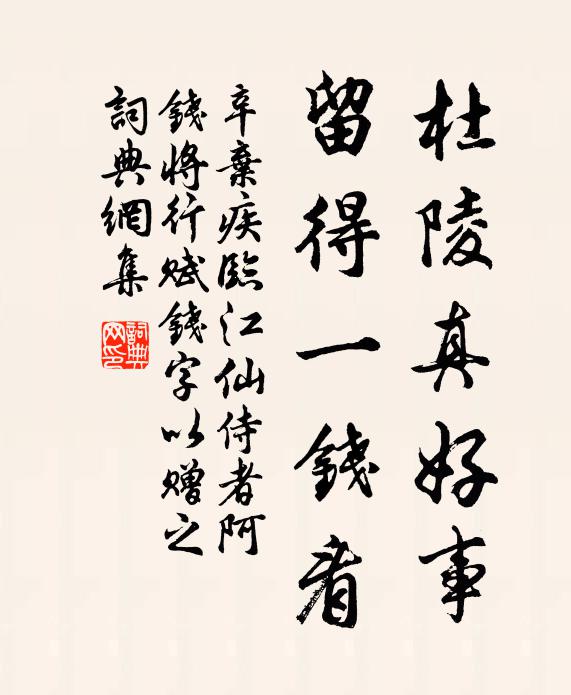 杜陵真好事
留得一錢看
辛棄疾臨江仙侍者阿
錢將行賦錢字以赠之
詞典網集
詞典网印